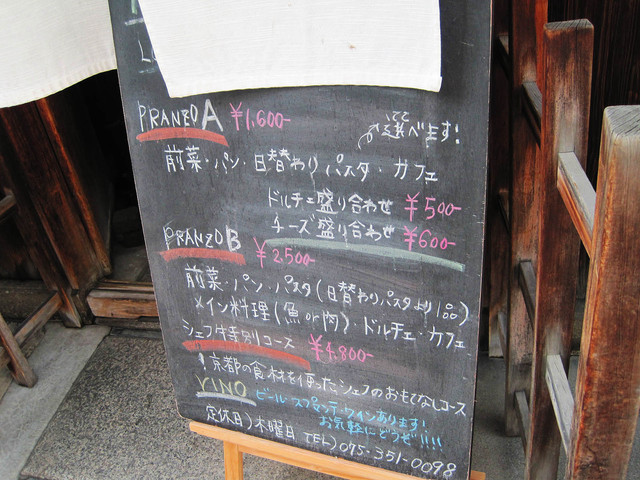 PRANZO A ¥1,600-
全て選べます!
前菜・パン・日替わりパスタ・カフェ
ドルチェ盛り合わせ ¥500-
チーズ盛り合わせ ¥600-
PRANZO B ¥2,500-
前菜・パン・パスタ(日替わりパスタより1品)
メイン料理(魚or肉)・ドルチェ・カフェ
シェフ特別コース ¥4,800-
!京都の食材を使ったシェフのおもてなしコース
VINO ビール・スプマンテ・ワインあります!
お気軽にどうぞ!!!!
定休日)木曜日 TEL)075-351-0098